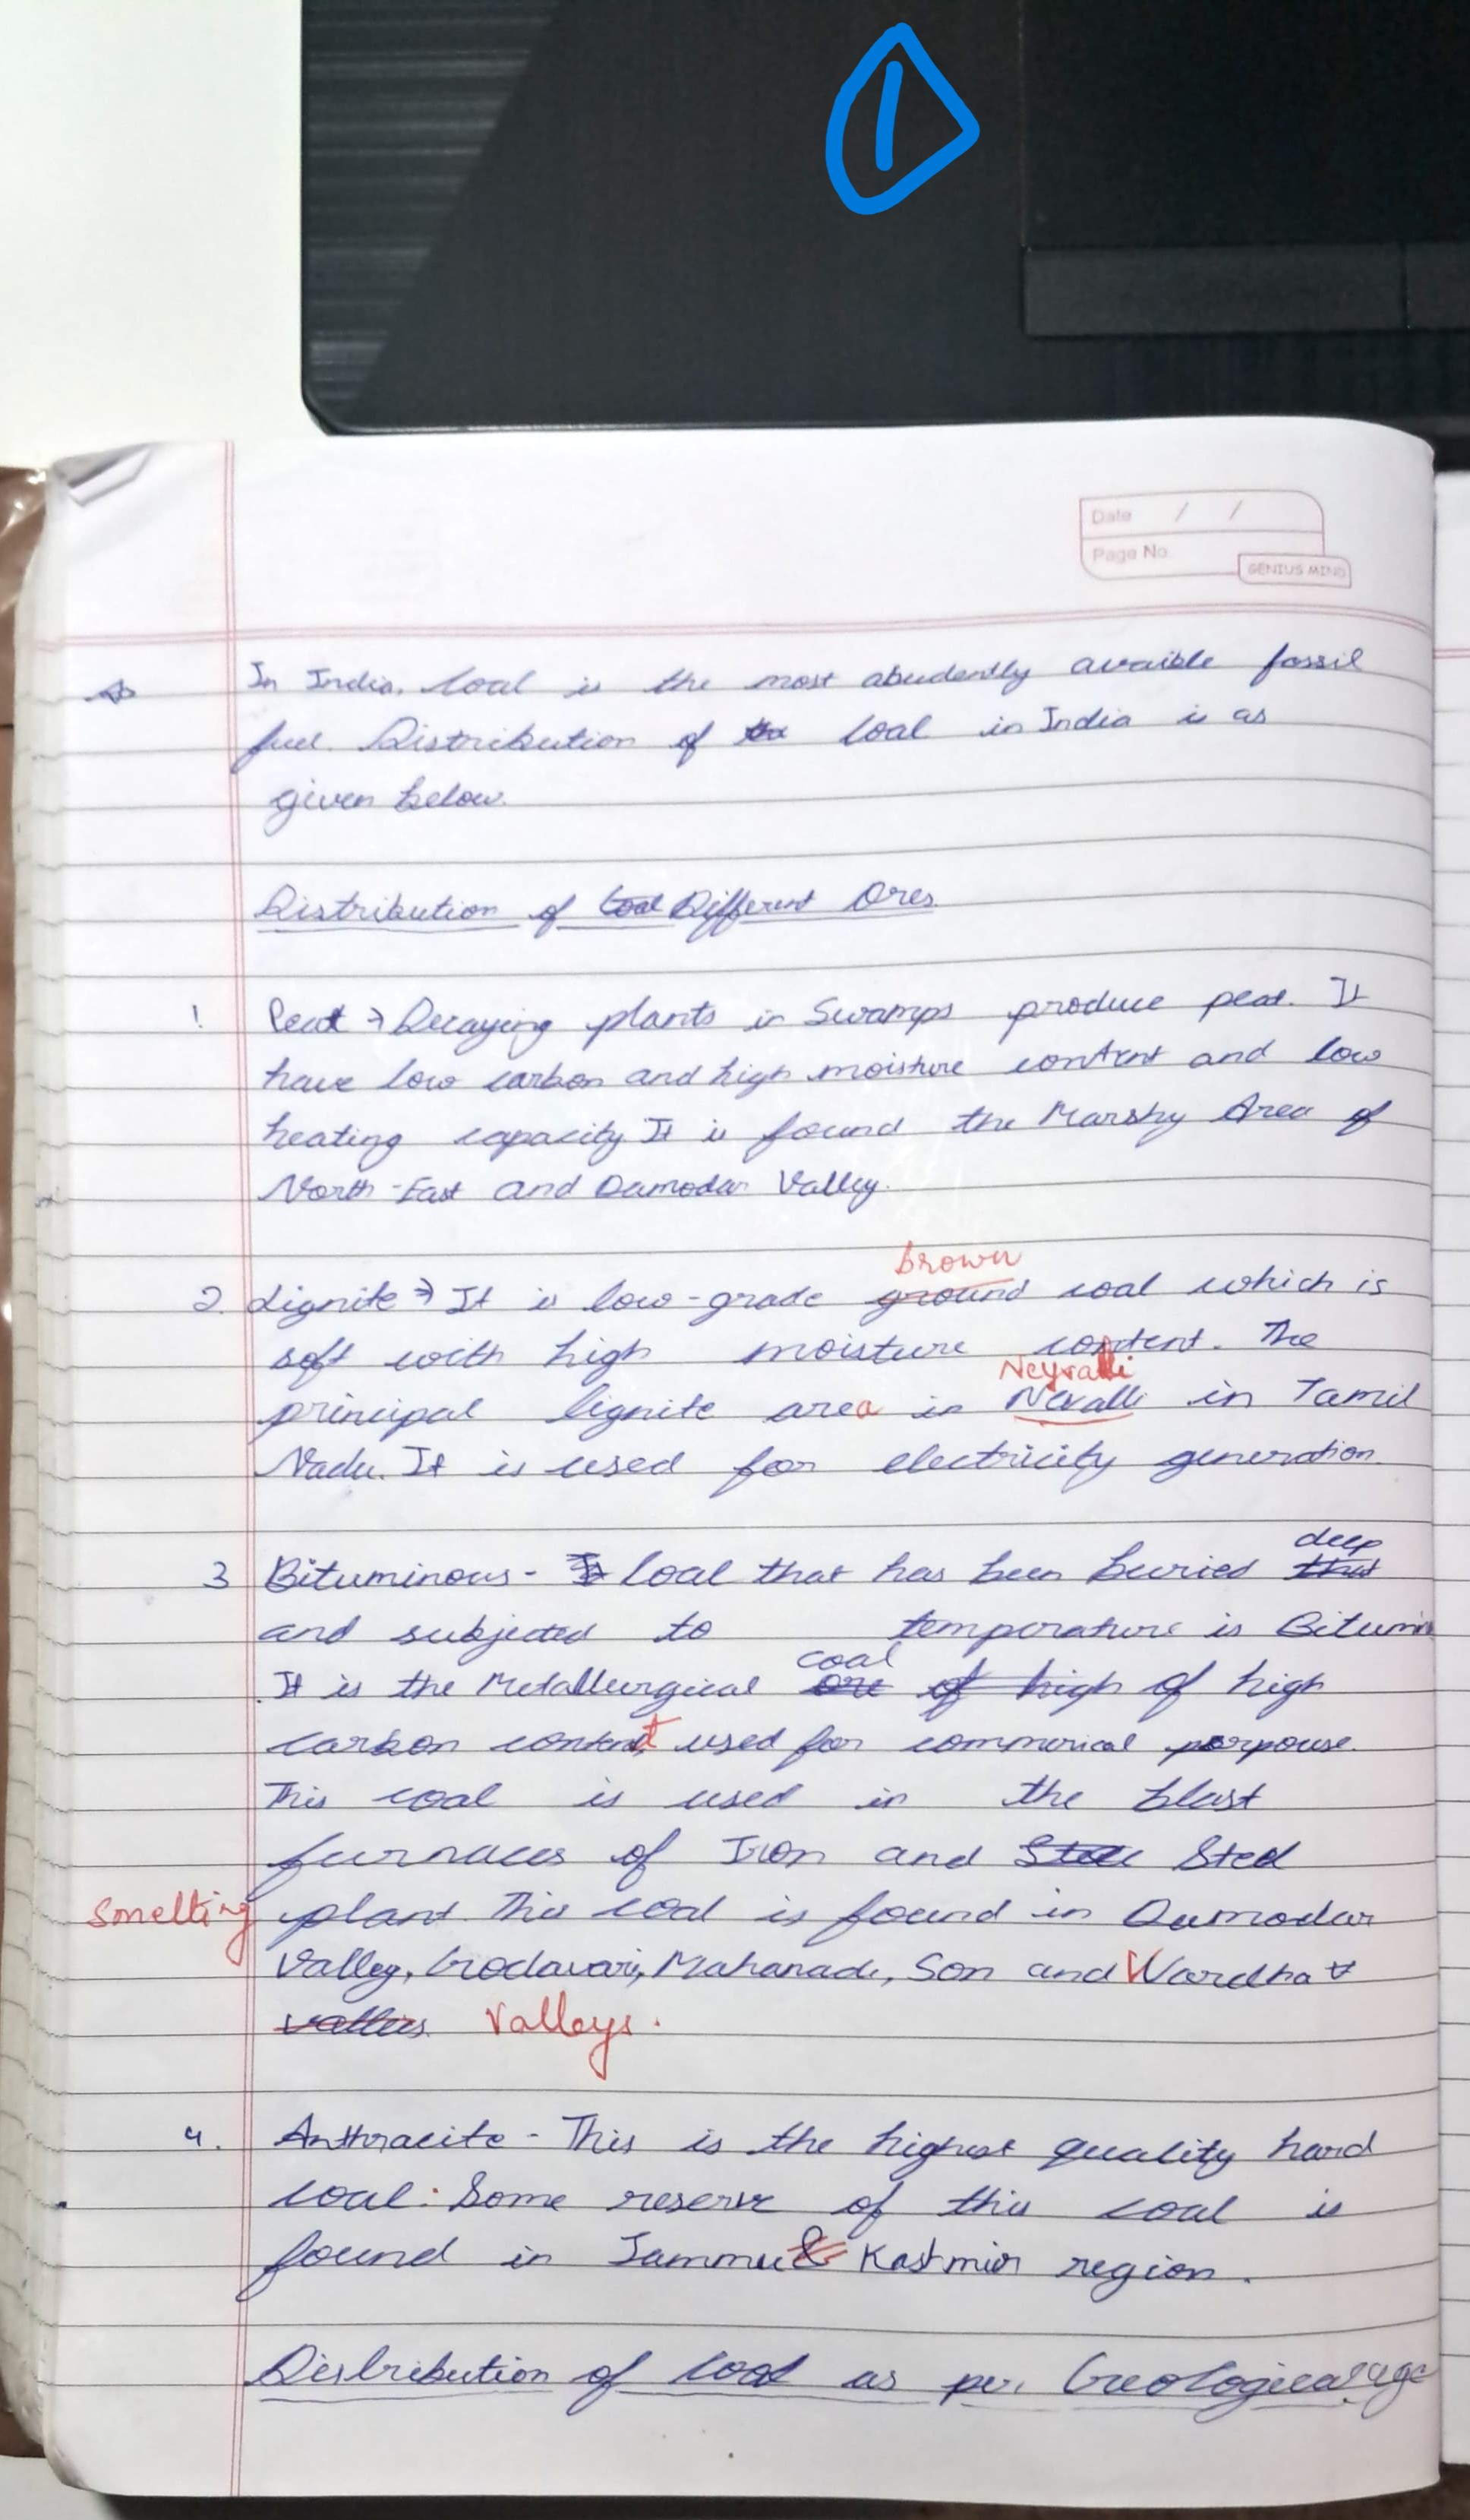 1
Date / /
Page No
GENIUS MIND
In India, Coal is the most abudently avaible fossil
fuel. Distribution of the Coal in India is as
given below.
Distribution of Coal Different Ores
1 Peat → Decaying plants in Swamps produce peat. It
have low carbon and high moisture content and low
heating capacity It is found the Marshy Area of
North-East and Damodar Valley.
brown
2. Lignite → It is low-grade ground coal which is
soft with high moisture content. The
Neyvalli
principal lignite area in Nevalli in Tamil
Nadu. It is used for electricity generation.
deep
3 Bituminous - It Coal that has been buried that
and subjected to temperature is Bitumin
coal
It is the Metallurgical ore of high of high
carbon content used for commerical porpouse.
This coal is used in the blast
furnaces of Iron and Stee Steel
smelting plant. This coal is found in Damodar
Valley, Godavari, Mahanadi, Son and Wardha v
vallies. Valleys.
4. Anthracite - This is the highest quality hard
coal. Some reserve of this coal is
found in Jammu & Kashmir region.
Distribution of Coal as per Geological age